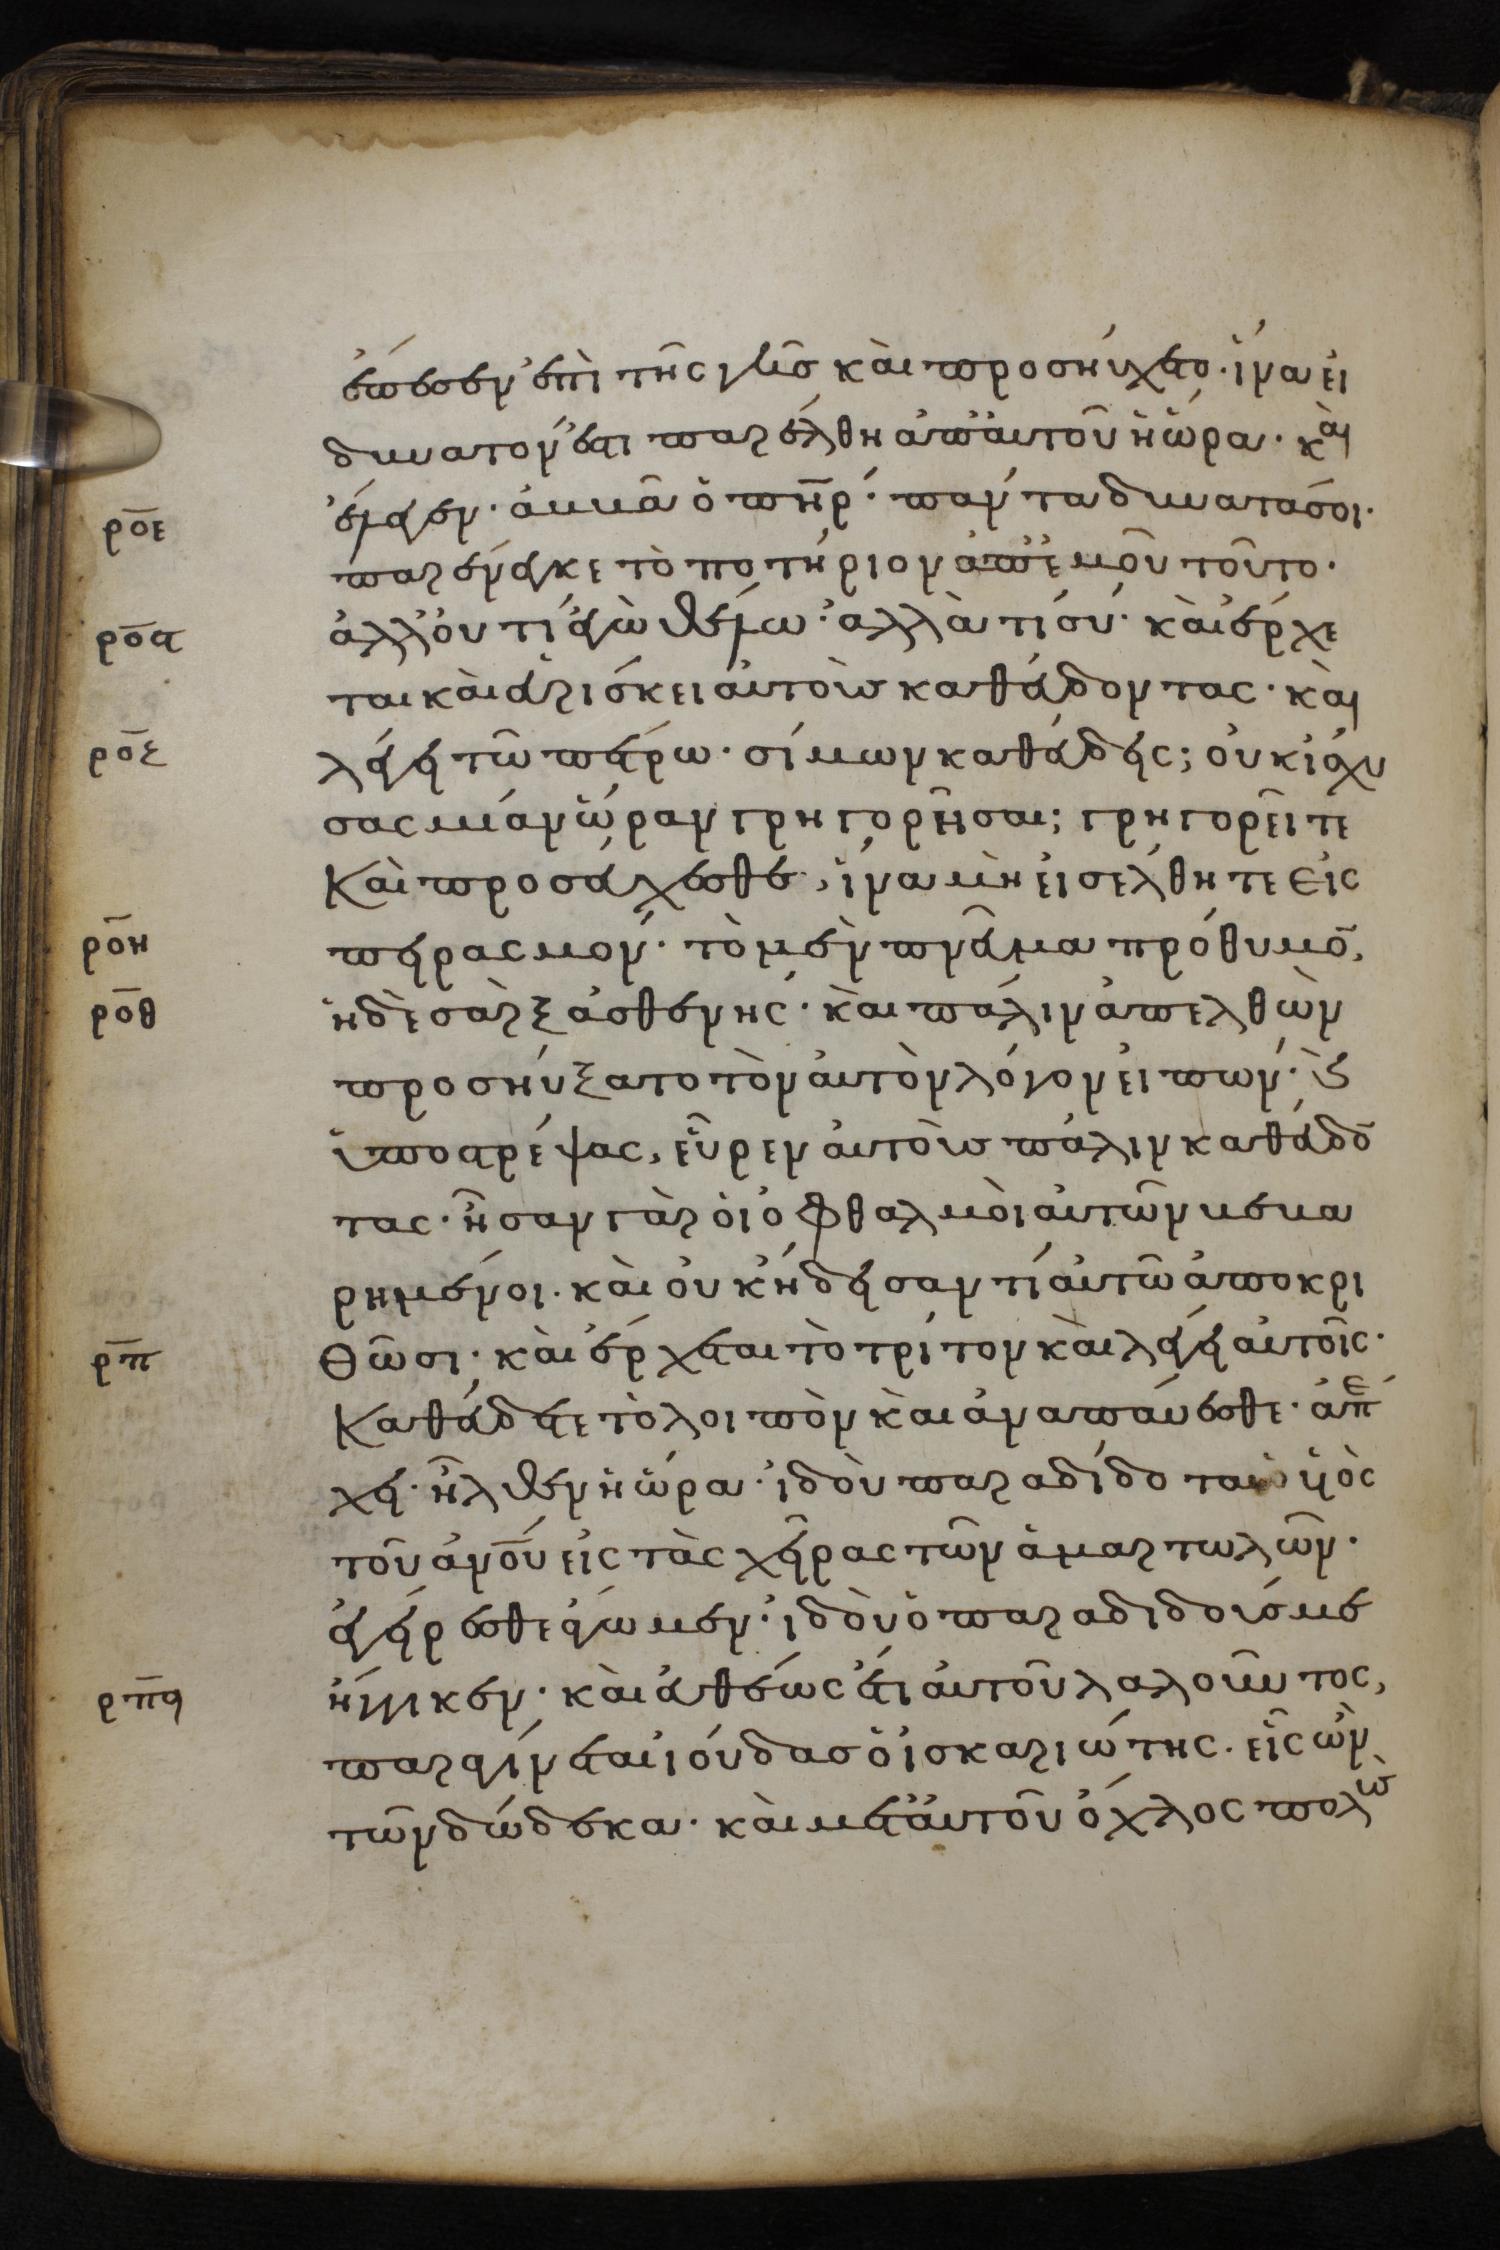 ἔπεσεν ἐπὶ τῆς γῆς καὶ προσηύχετο· ἵνα εἰ
δυνατόν ἐστι παρέλθη ἀπ' αὐτοῦ ἡ ὥρα· καὶ
ροε ἔλεγεν· ἀββᾶ ὁ πηρ· πάντα δυνατά σοι·
παρένεγκε τὸ ποτήριον ἀπ' ἐμοῦ τοῦτο·
ροϛ ἀλλ' οὐ τί ἐγὼ θέλω· ἀλλὰ τί σύ· καὶ ἔρχε
ται καὶ εὑρίσκει αὐτοὺς καθεύδοντας· καὶ
ροζ λέγει τῶ πέτρω· σίμων καθεύδεις; οὐκ ἴσχυ
σας μίαν ὥραν γρηγορῆσαι; γρηγορεῖτε
Καὶ προσεύχεσθε, ἵνα μὴ εἰσέλθητε εἰς
ροη πειρασμόν· τὸ μὲν πνεῦμα πρόθυμο̄,
ροθ ἡ δὲ σὰρξ ἀσθενής· καὶ πάλιν ἀπελθὼν
προσηύξατο τὸν αὐτὸν λόγον εἰπών· ϗ
ὑποστρέψας, εὗρεν αὐτοὺς πάλιν καθεύδο̄
τας· ἦσαν γὰρ οἱ ὀφθαλμοὶ αὐτῶν βεβα
ρημένοι· καὶ οὐκ ἤδεισαν τί αὐτῶ ἀποκρι
ρπ Θῶσι· καὶ ἔρχεται τὸ τρίτον καὶ λέγει αὐτοῖς·
Καθεύδετε τὸ λοιπὸν καὶ ἀναπαύεσθε· ἀπέ
χει· ἦλθεν ἡ ὥρα· ἰδοὺ παραδίδοται ὁ υἱὸς
τοῦ ἀνου εἰς τὰς χεῖρας τῶν ἁμαρτωλῶν·
ἐγείρεσθε ἄγωμεν· ἰδοὺ ὁ παραδιδούς με
ρπα ἤγγικεν· καὶ εὐθέως ἔτι αὐτοῦ λαλοῦντος,
παραγίνεται ἰούδας ὁ ἰσκαριώτης· εἷς ὢν
τῶν δώδεκα· καὶ μετ' αὐτοῦ ὄχλος πολὺς